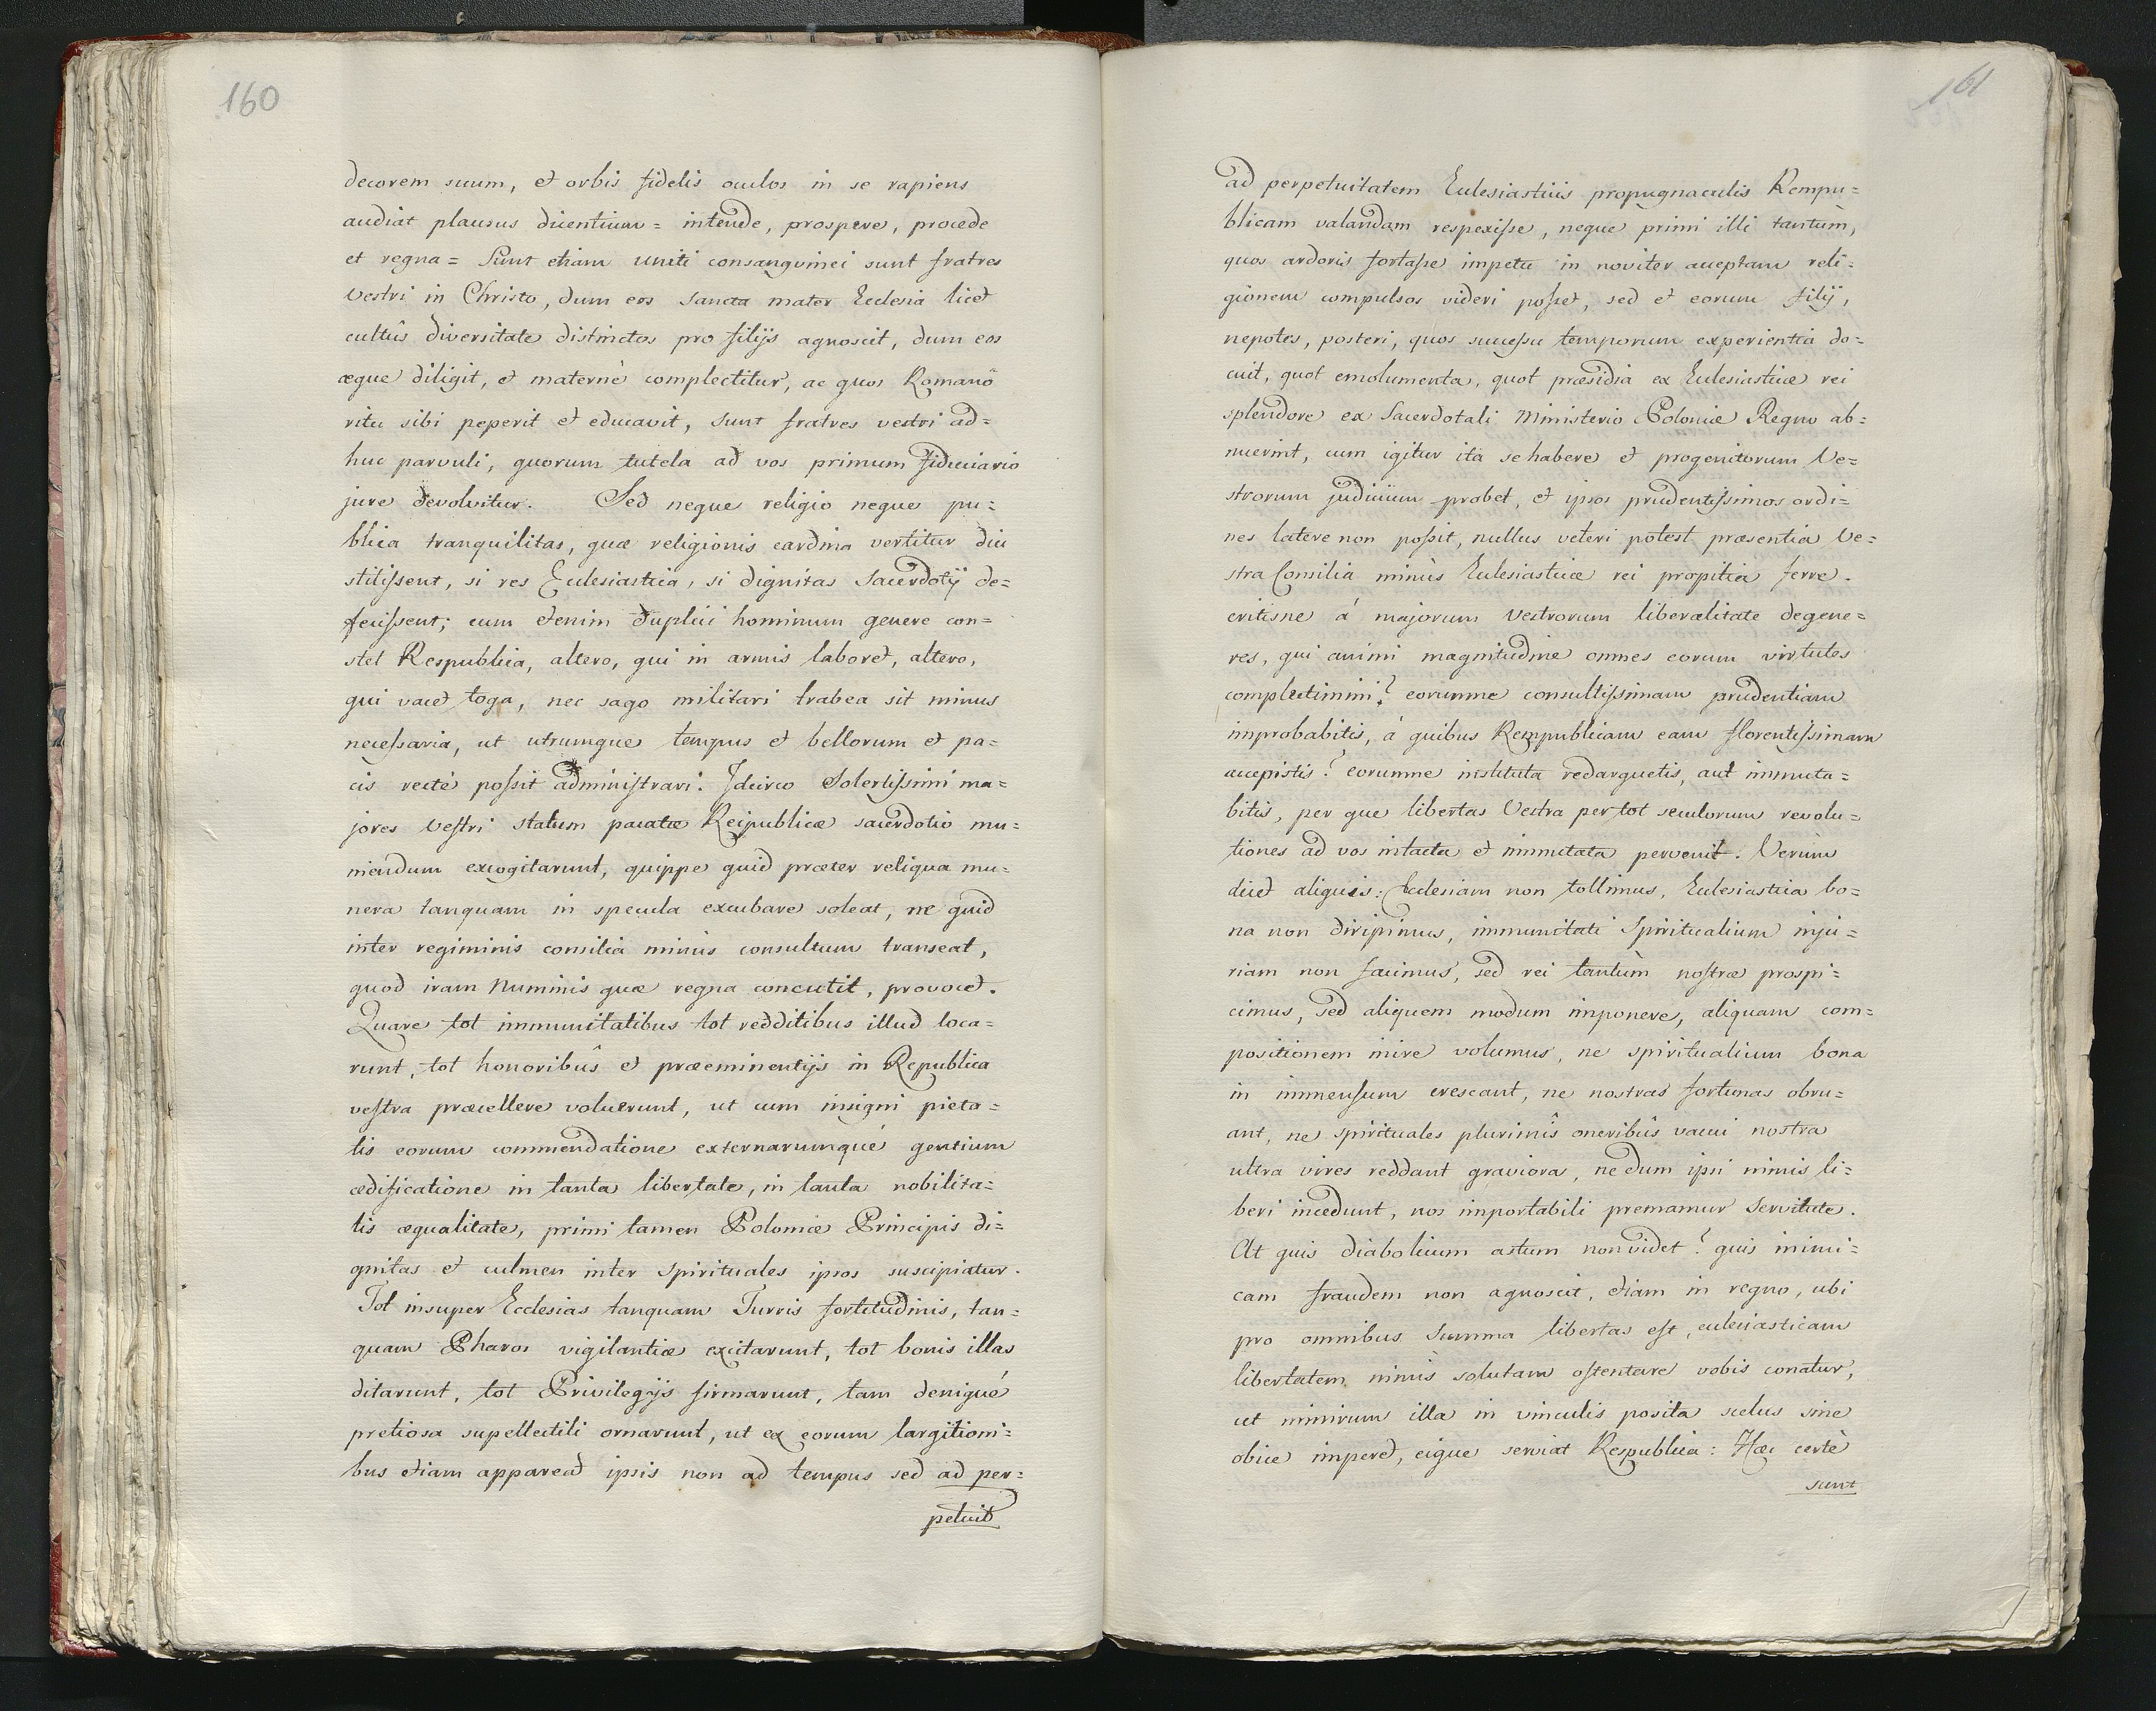 160
decorem suum, et orbis fidelis oculos in se rapiens
audiat plausus dicentium = intende, prospere, procede
et regna = Sunt etiam uniti consangvinei sunt fratres
Vestri in Christo, dum eos Sancta mater Ecclesia licet
cultûs diversitate distinctos pro filijs agnoscit, dum eos
æque diligit, et maternè complectitur, ac quos Romanô
ritu sibi peperit et educavit, sunt fratres vestri ad=
huc parvuli, quorum tutela ad vos primum fiduciario
jure devolvitur. Sed neque religio neque pu=
blica tranquilitas, quæ religionis cardina vertitur diu
stitissent, si res Ecclesiastica, si dignitas Sacerdotij de=
fecissent; cum etenim duplici hominum genere con=
stet Respublica, altero, qui in armis laboret, altero,
qui vacet toga, nec sago militari trabea sit minus
necessaria, ut utrumque tempus et bellorum et pa=
cis rectè possit administrari. Idcirco Solertissimi ma=
jores Vestri statum pacatæ Reipublicæ sacerdotio mu=
niendum excogitarunt, quippe quid præter reliqua mu=
nera tanquam in specula excubare soleat, ne quid
inter regiminis consilia minùs consultum transeat,
quod iram Numinis quæ regna concutit, provocet.
Quare tot immunitatibus tot redditibus illud loca=
runt, tot honoribûs et præeminentijs in Republica
vestra præcellere voluerunt, ut cum insigni pieta=
tis eorum commendatione externarumqué gentium
ædificatione in tanta libertate, in tanta nobilita=
tis æqualitate, primi tamen Poloniæ Principis di=
gnitas et culmen inter spirituales ipsos suscipiatur.
Tot insuper Ecclesias tanquam Turris fortitudinis, tan=
quam Pharos vigilantiæ excitarunt, tot bonis illas
ditarunt, tot Privilegijs firmarunt, tam deniqué
pretiosa supellectili ornarunt, ut ex eorum largitioni=
bus etiam appareat ipsis non ad tempus sed ad per=
petuit
161
ad perpetuitatem Ecclesiasticis propugnaculis Rempu=
blicam valandam respexisse, neque primi illi tantùm,
quos ardoris fortasse impetu in noviter acceptam reli=
gionem compulsos videri posset, sed et eorum filij,
nepotes, posteri, quos successu temporum experientia do=
cuit, quot emolumenta, quot præsidia ex Ecclesiasticæ rei
splendore ex Sacerdotali Ministerio Poloniæ Regno ab=
nuerint, cum igitur ita se habere et progenitorum Ve=
strorum judicium probet, et ipsos prudentissimos ordi=
nes latere non possit, nullus veteri potest præsentia Ve=
stra Consilia minùs Ecclesiasticæ rei propitia ferre.
eritisne á majorum Vestrorum liberalitate degene=
res, qui animi magnitudine omnes eorum virtutes
complectimini? eorumne consultissimam prudentiam
improbabitis, á quibus Rempublicam eam florentissimam
accepistis? eorumne instituta redarguetis, aut immuta=
bitis, per que libertas Vestra per tot seculorum revolu=
tiones ad vos intacta et immutata pervenit. Verùm
dicet aliquis: Ecclesiam non tollimus, Ecclesiastica bo=
na non diripimus, immunitati Spiritualium inju=
riam non facimus, sed rei tantùm nostræ prospi=
cimus, sed aliquem modum imponere, aliquam com=
positionem inire volumus, ne spiritualium bona
in immensum crescant, ne nostras fortunas obru=
ant, ne spirituales plurimîs oneribûs vacui nostra
ultra vires reddant graviora, ne dum ipsi nimis li=
beri incedunt, nos importabili premamur Servitute.
At quis diabolicum astum non videt? quis inimi=
cam fraudem non agnoscit, etiam in regno, ubi
pro omnibus Summa libertas est, ecclesiasticam
libertatem nimis solutam ostentare vobis conatur,
ut nimirum illa in vinculis posita scelus sine
obice imperet, eique serviat Respublica: Hæc certè
sunt